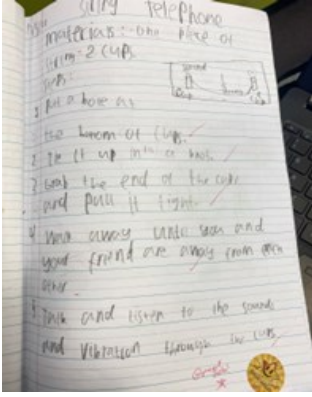 String Telephone
materials: one piece of
string 2 cups
steps:
1 Put a hole at
the bottom of cups.
2 Tie it up into a knot.
3 the end of the cup
and pull it tight.
4 away until you and
your friend are away from each
other.
5 Talk and listen to the sounds
and vibration through the cups
sound
Cup
Cup